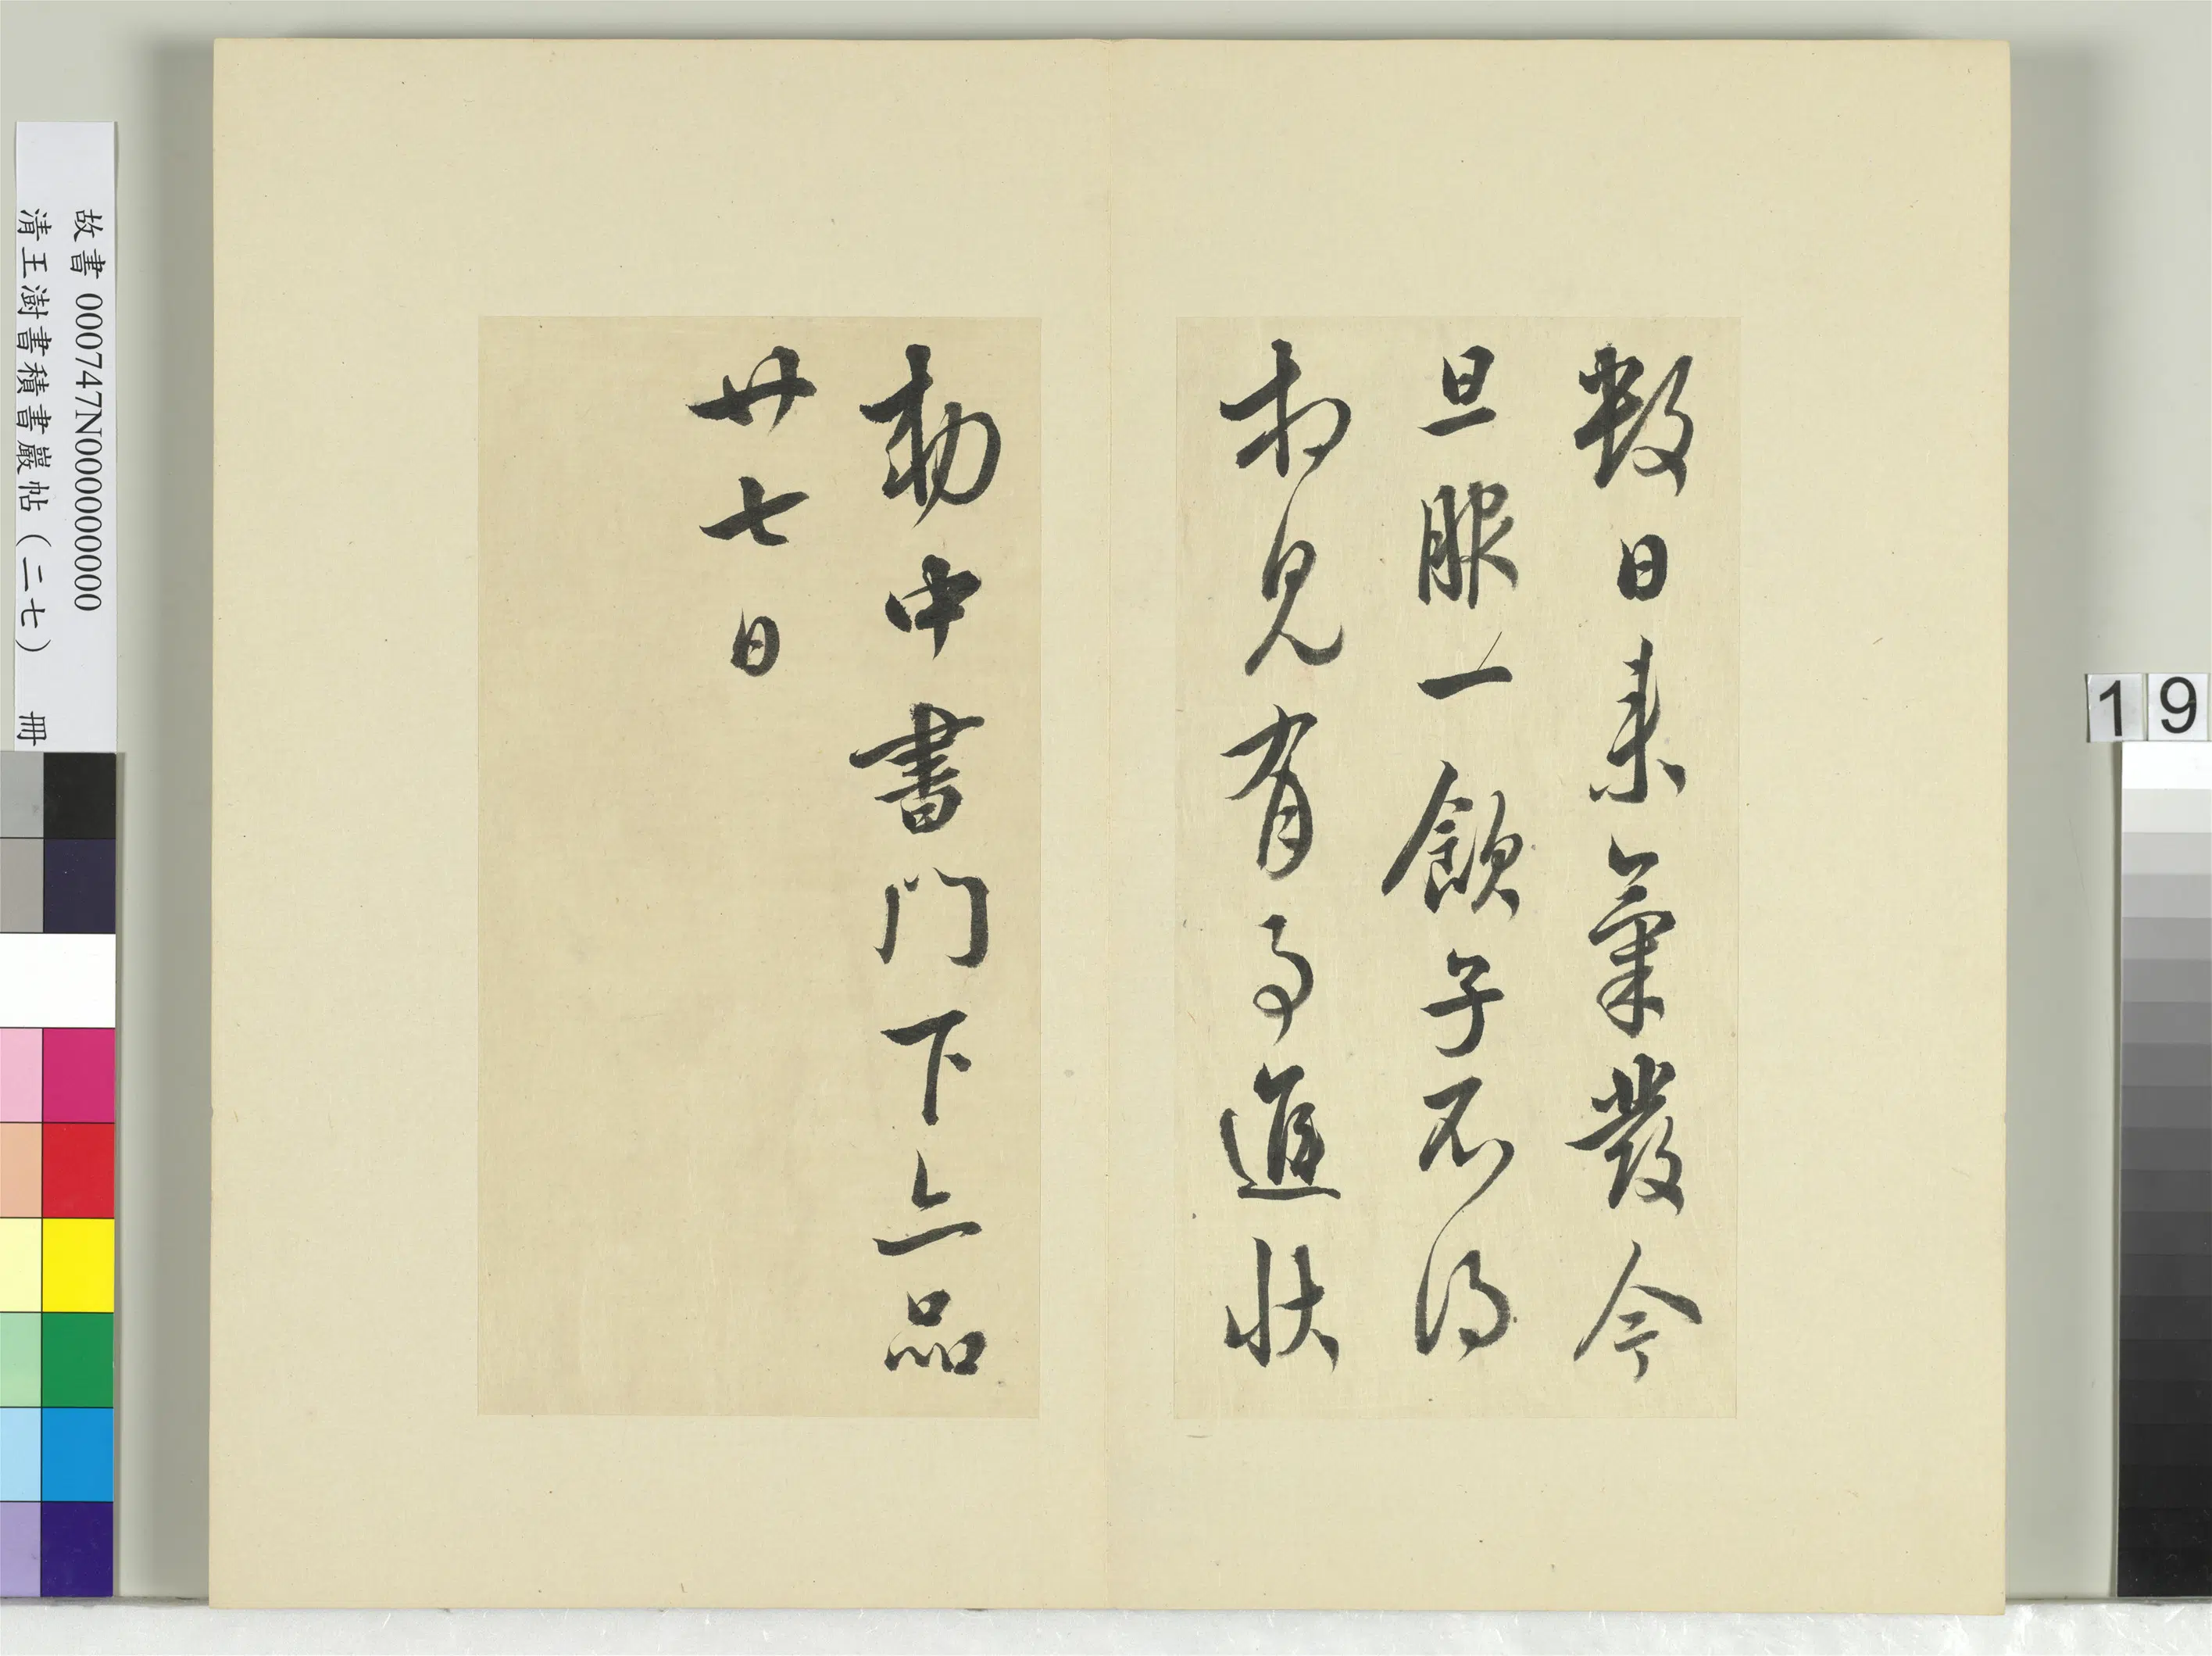 數日來氣發今
旦服一飲子不得
相見有事進狀
勅中書門下三品
廿七日
故書 000747N000000000
清王澍書積書巖帖（二七） 冊
19